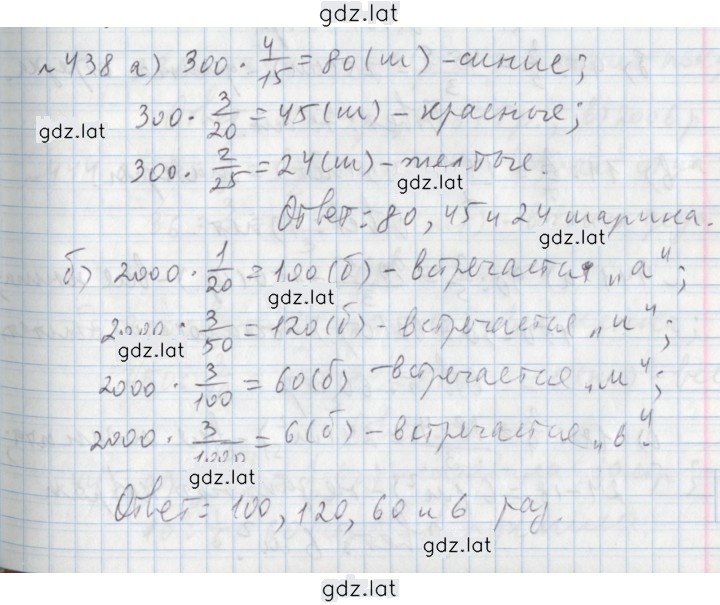 gdz.lat
№ 438 а) 300 · 4/15 = 80 (ш) - синие;
300 · 3/20 = 45 (ш) - красные;
gdz.lat
300 · 2/25 = 24 (ш) - желтые.
gdz.lat
Ответ: 80, 45 и 24 шарика.
gdz.lat
б) 2000 · 1/20 = 100 (б) - встречается „а";
gdz.lat
2000 · 3/50 = 120 (б) - встречается „и";
gdz.lat
2000 · 3/100 = 60 (б) - встречается „м";
2000 · 3/1000 = 6 (б) - встречается „в".
gdz.lat
Ответ: 100, 120, 60 и 6 раз.
gdz.lat
gdz.lat